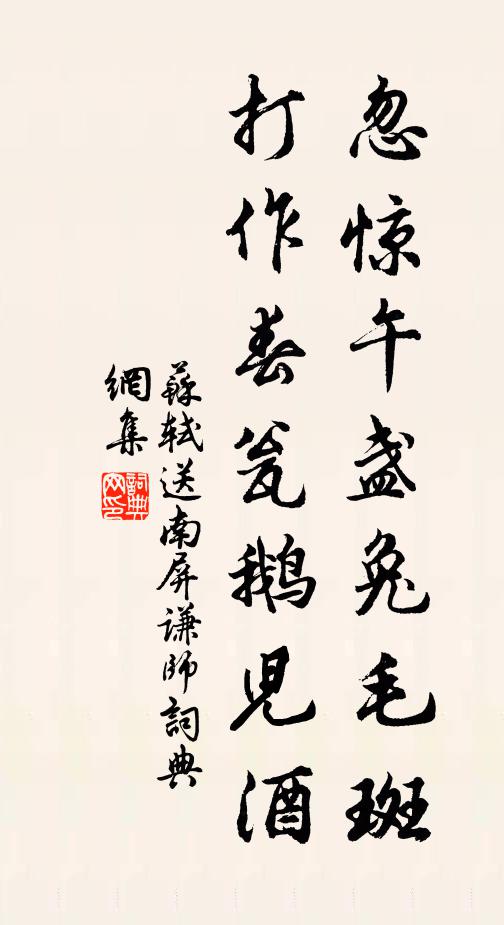 忽惊午盏兔毛斑
打作春瓮鹅児酒
蘇軾送南屏謙師詞典
網集
詞典网印